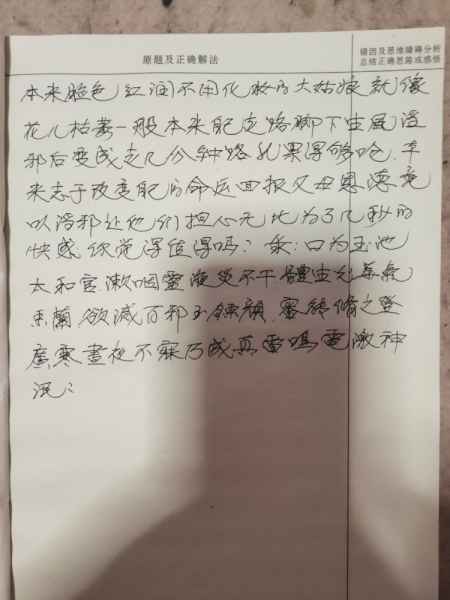 原题及正确解法
错因及思维障碍分析
总结正确思路或感悟
本来脸色红润不用化妆的大姑娘就像
花儿枯萎一般本来能走路脚下生风淫
邪后变成走几分钟路就累得够呛,本
来志于改变的命运回报父母恩
以淫邪让他们担心无比为了几秒的
快感你觉得值得吗?口为玉池
太和官漱咽靈液災不干體生光華氣
香蘭欲滅百邪玉鍊顏審能脩之登
廣寒晝夜不寐乃成真雷鳴電激神
泯泯